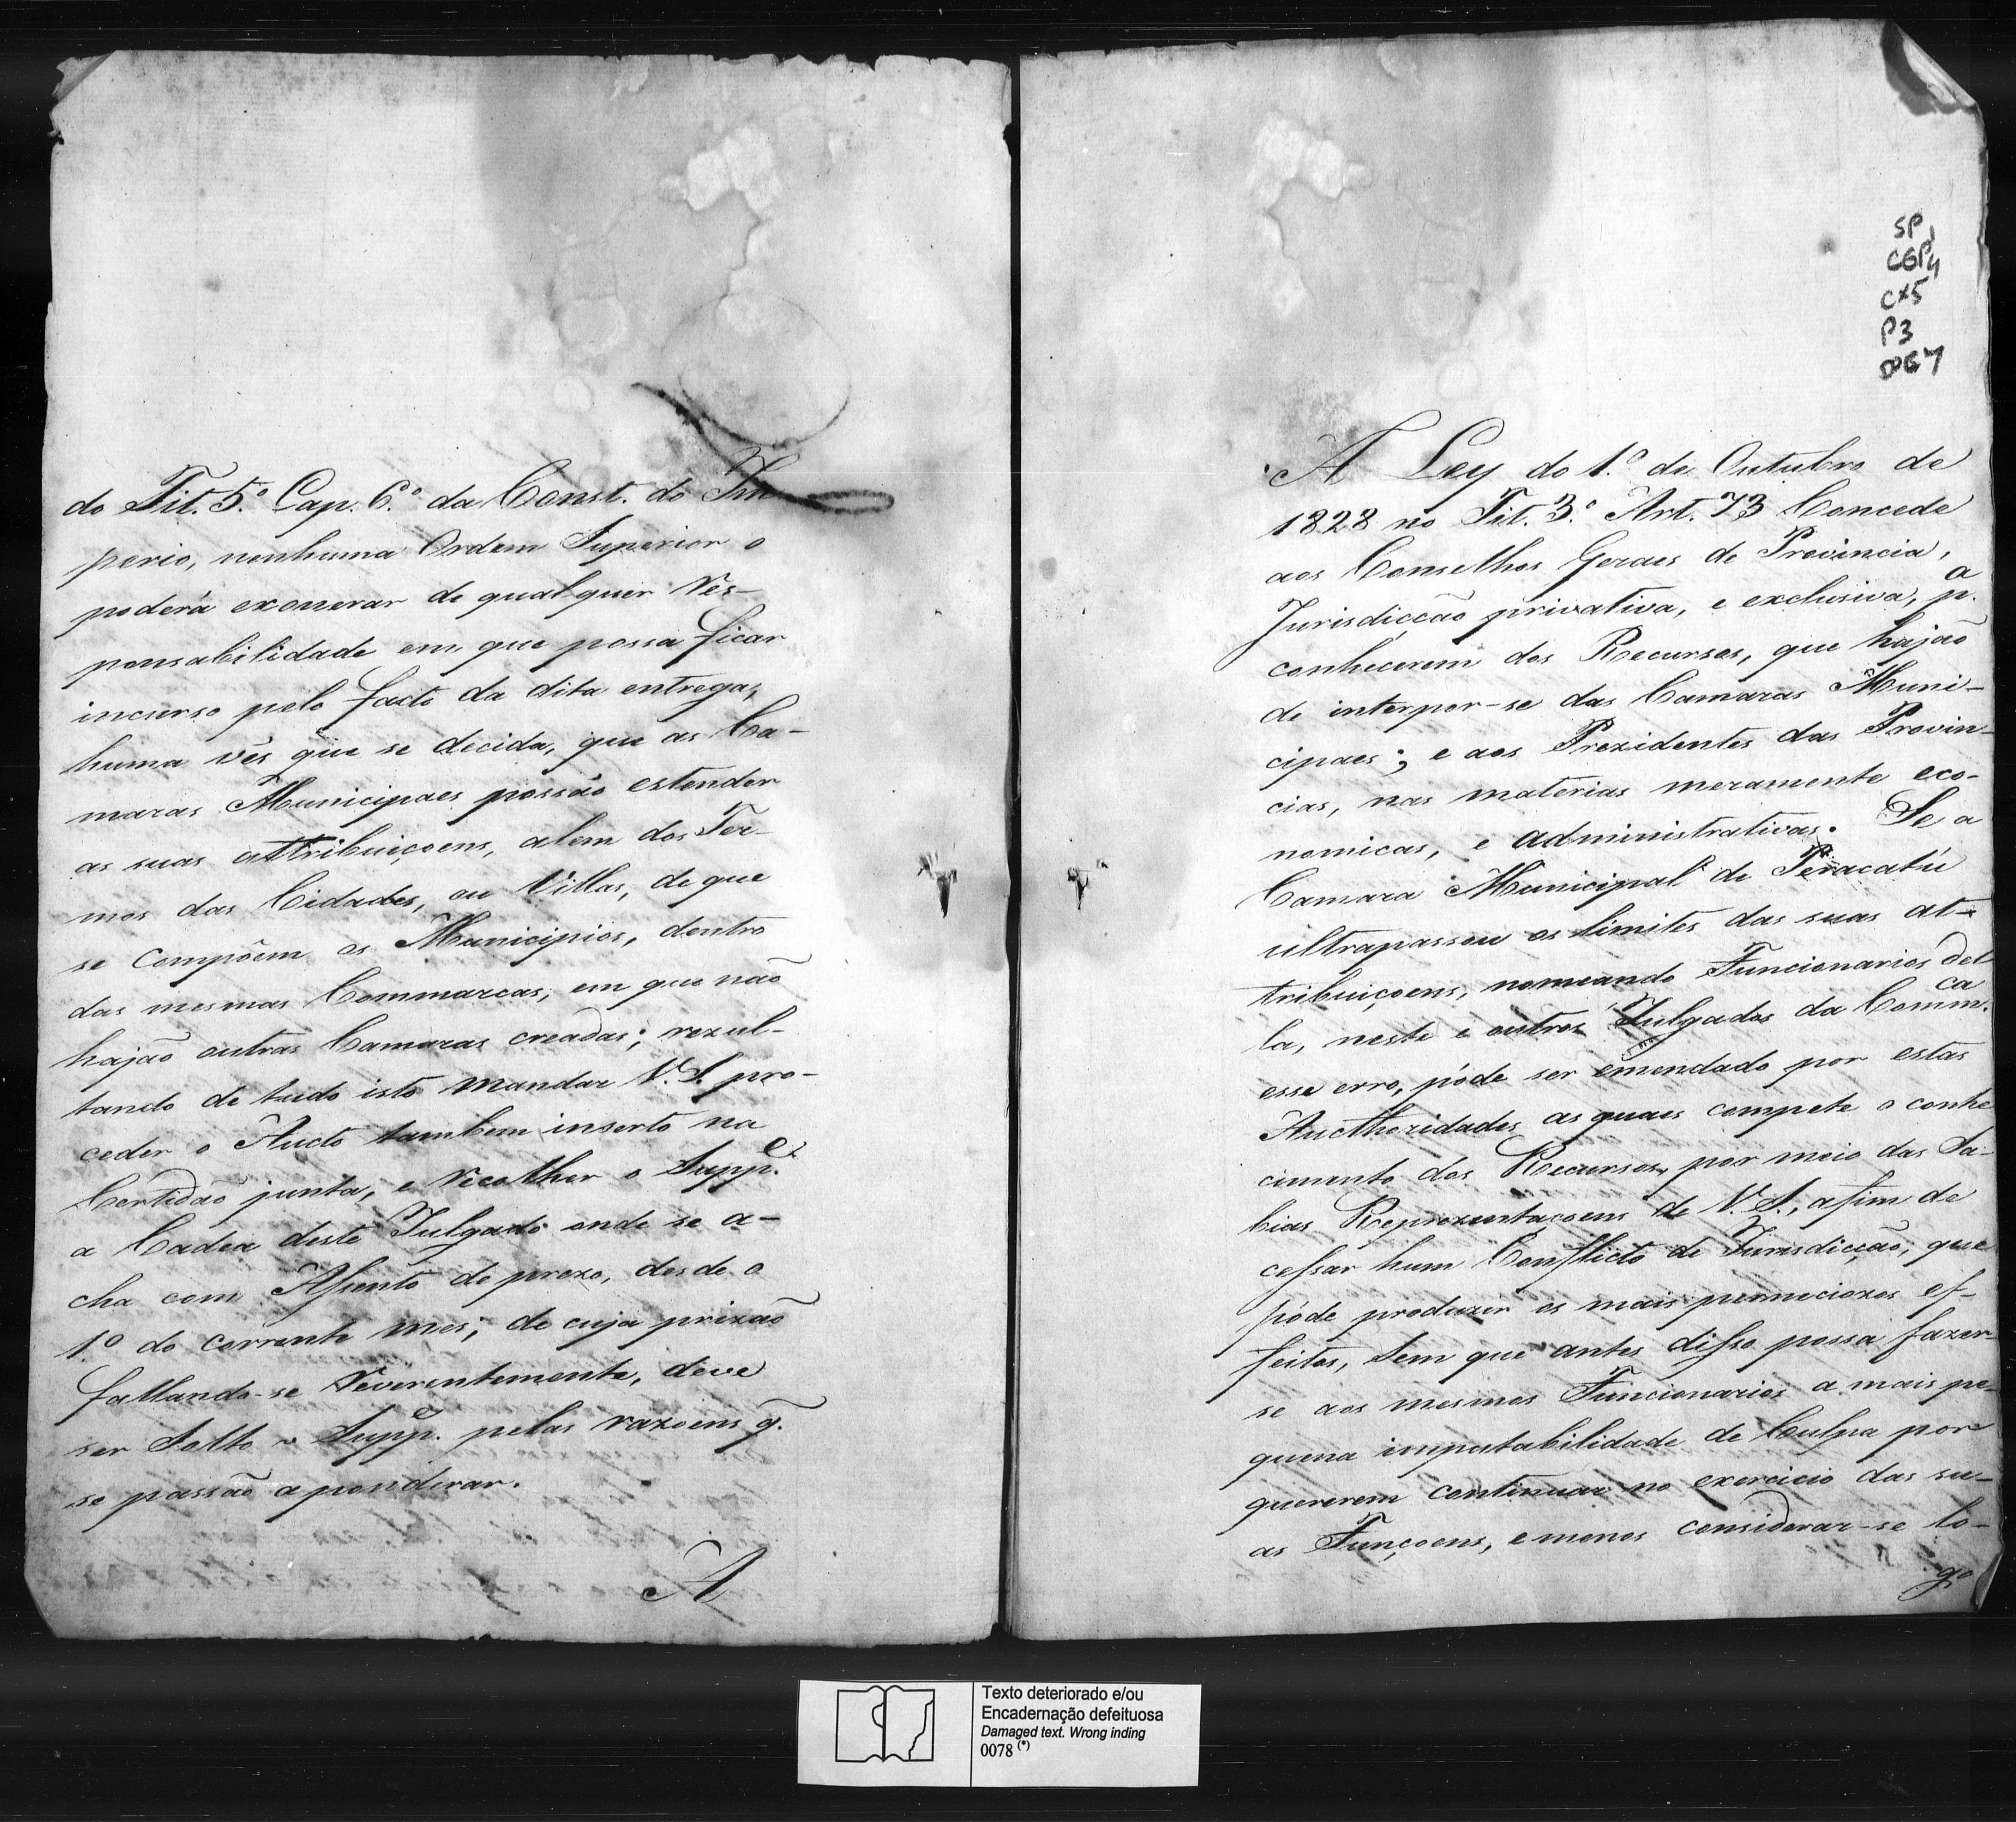 do Tit. 5.º Cap. 6.º da Const. do Im
perio, nenhuma Ordem Superior o
poderá exonerar de qualquer Res-
ponsabilidade em que possa ficar
incurso pelo facto da dita entrega,
huma vês que se decida, que as Ca-
maras Municipaes possão estender
as suas attribuiçoens, alem dos Ter-
mos das Cidades, ou Villas, de que
se compôem os Municipios, dentro
das mesmas Commarcas, em que não
hajão outras Camaras creadas; rezul-
tando de tudo isto mandar V. S. pro-
ceder o Aucto tambem inserto na
Certidão junta, e recolher o Supp.e
a Cadea deste Julgado onde se a-
cha com Assento de prezo, desde o
1.º do corrente mes; de cuja prizão
fallando-se Reverentemente, deve
ser Solto o Supp.e pelas razoens q̃.
se passão a ponderar.
A
SP
CGP4
CX5
P3
DOC7
A Ley do 1.º de Outubro de
1828 no Tit. 3.º Art. 73 Concede
aos Conselhos Geraes de Provincia,
Jurisdicção privativa, e exclusiva, p.a
conhecerem dos Recursos, que hajão
de interpor-se das Camaras Muni-
cipaes; e aos Prezidentes das Provin-
cias, nas materias meramente eco-
nomicas, e administrativas. Se a
Camara Municipal de Peracatú
ultrapassou os limites das suas at-
tribuiçoens, nomeando Funcionarios del
la, neste e outros Julgados da Comm.ca
esse erro, póde ser emendado por estas
Aucthoridades as quaes compete o conhe
cimento dos Recursos, por meio das Sa-
bias Reprezentaçoens de V. S., afim de
cessar hum Conflicto de Jurisdicção, que
póde produzir os mais perniciozos ef-
feitos, Sem que antes disso possa fazer-
se aos mesmos Funcionarios a mais pe-
quena imputabilidade de Culpa por
quererem continuar no exercicio das su-
as Funçoens, e menos considerar-se lo-
go
Texto deteriorado e/ou
Encadernação defeituosa
Damaged text. Wrong inding
0078 (*)